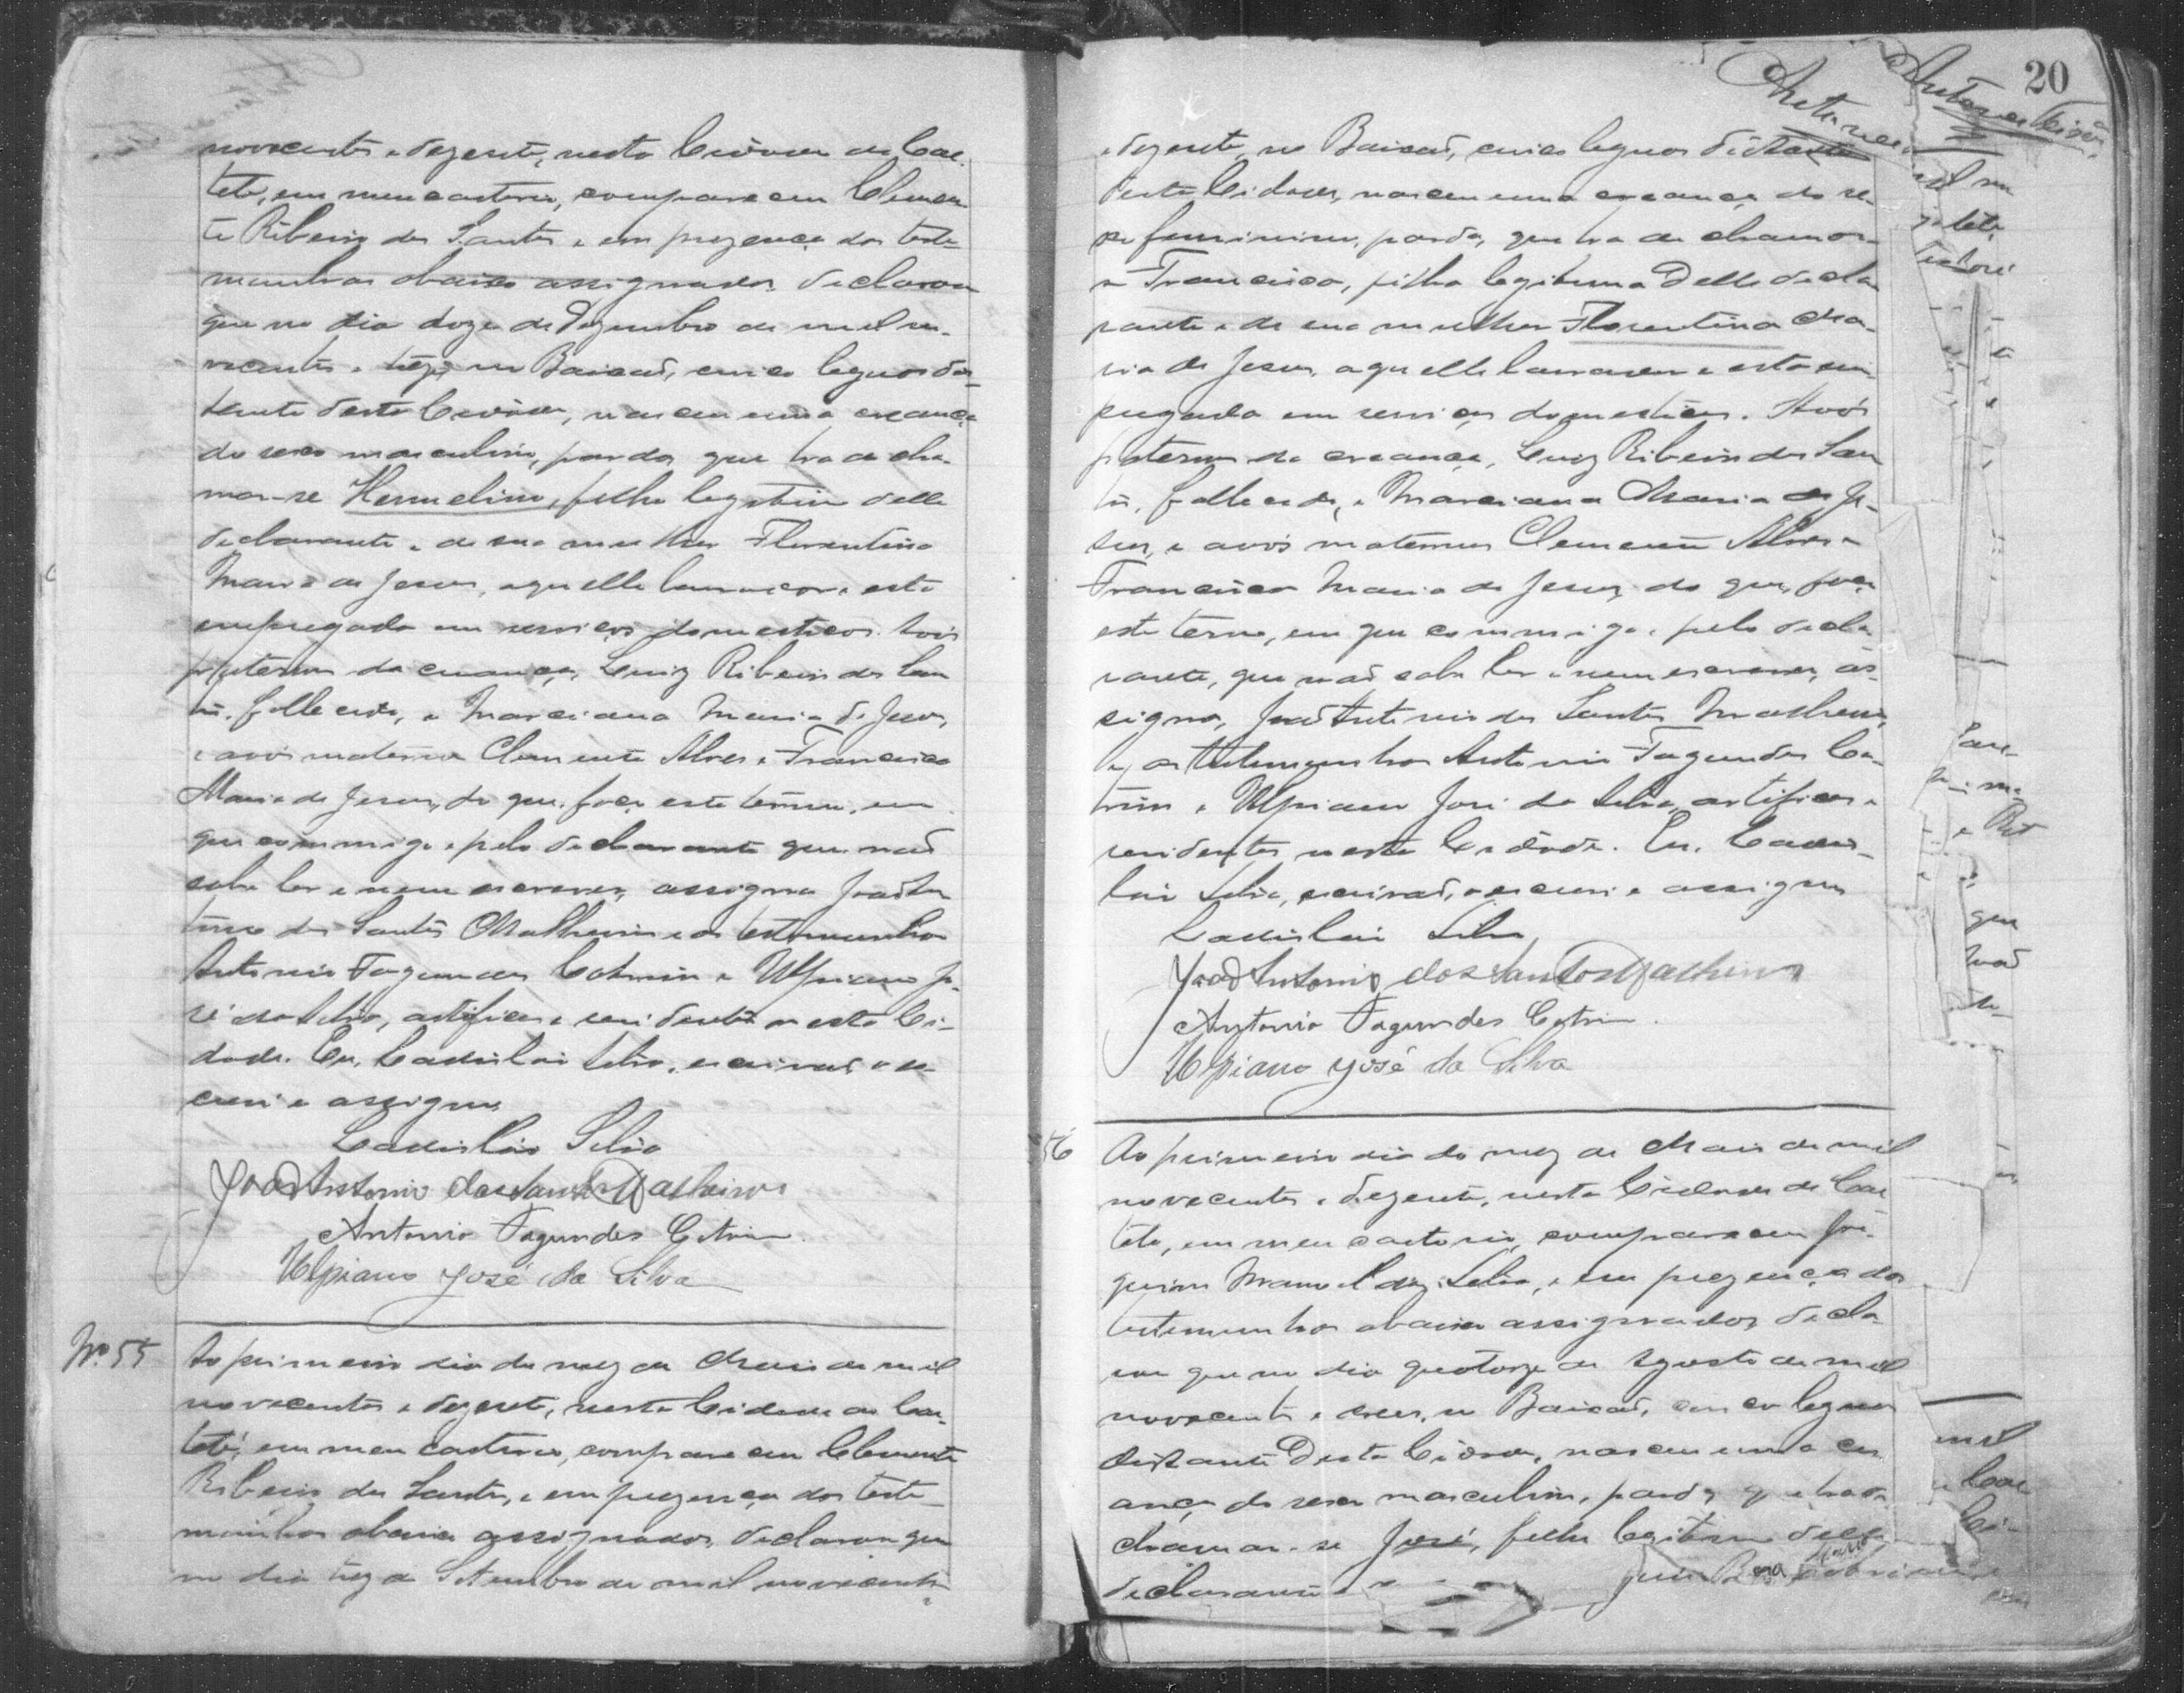 novecentos e dezesete, nesta Cidade de Cae-
teté, em meu cartorio, compareceu Clemen
te Ribeiro dos Santos e em prezença das teste-
munhas abaixo assignadas, declarou
que no dia doze de Dezembro de mil no-
vecentos e treze no Baixad, cinco leguas dis-
tante desta Cidade, nasceu uma creança
do sexo masculino, parda, que ha de cha-
mar-se Hermelino, filho legitimo delle
declarante e de sua mulher Florentina
Maria de Jesus, aquelle lavrador e esta
empregada em serviços domesticos. Avós
paternos da creança, Luiz Ribeiro dos San
tos, fallecido, e Marciana Maria de Jesus,
e avós maternos Clemente Alves e Francisca
Maria de Jesus, do que, faço este termo, em
que commigo e pelo declarante que não
sabe ler e nem escrever, assigna João An
tonio dos Santos Malheiros e as testemunhas
Antonio Fagundes Cotrim e Ulpiano Jo-
sé da Silva, artifices e residentes nesta Ci-
dade. Eu, Ladislau Silva, escrivão, o es-
crevi e assigno
Ladisláo Silva
João Antonio dos Santos Malheiros
Antonio Fagundes Cotrim.
Ulpiano José da Silva
Nº 55
Ao primeiro dia do mez de Maio de mil
novecentos e dezesete, nesta Cidade de Cae-
teté, em meu cartorio, compareceu Clemente
Ribeiro dos Santos, e em prezença das teste-
munhas abaixo assignadas, declarou que
no dia trez de Setembro de mil novecentos
20
e dezesete, no Baixad, cinco leguas distante
desta Cidade, nasceu uma creança do se-
xo feminino, parda, que ha de chamar-
se Francisca, filha legitima delle decla-
rante e de sua mulher Florentina Ma-
ria de Jesus, aquelle lavrador e esta em-
pregada em serviços domesticos. Avós
paternos da creança, Luiz Ribeiro dos San
tos, fallecido, e Marciana Maria de Je-
sus, e avós maternos Clemente Alves e
Francisca Maria de Jesus, do que, faço
este termo, em que commigo e pelo decla-
rante, que não sabe ler e nem escrever, as-
signa, João Antonio dos Santos Malheiros,
e as testemunhas Antonio Fagundes Co-
trim e Ulpiano José da Silva, artifices e
residentes nesta Cidade. Eu, Ladis-
lau Silva, escrivão, o escrevi e assigno
Ladislau Silva
João Antonio dos Santos Malheiros
Antonio Fagundes Cotrim.
Ulpiano José da Silva
56
Ao primeiro dia do mez de Maio de mil
novecentos e dezesete, nesta Cidade de Cae
teté, em meu cartorio, compareceu Joa-
quim Manoel da Silva, e em prezença das
testemunhas abaixo assignadas, decla-
rou que no dia quatorze de Agosto de mil
novecentos e doze, no Baixad, cinco leguas
distante desta Cidade, nasceu uma cre
ança do sexo masculino, parda, que ha de
chamar-se José, filho legitimo delle
declarante e
mil
que